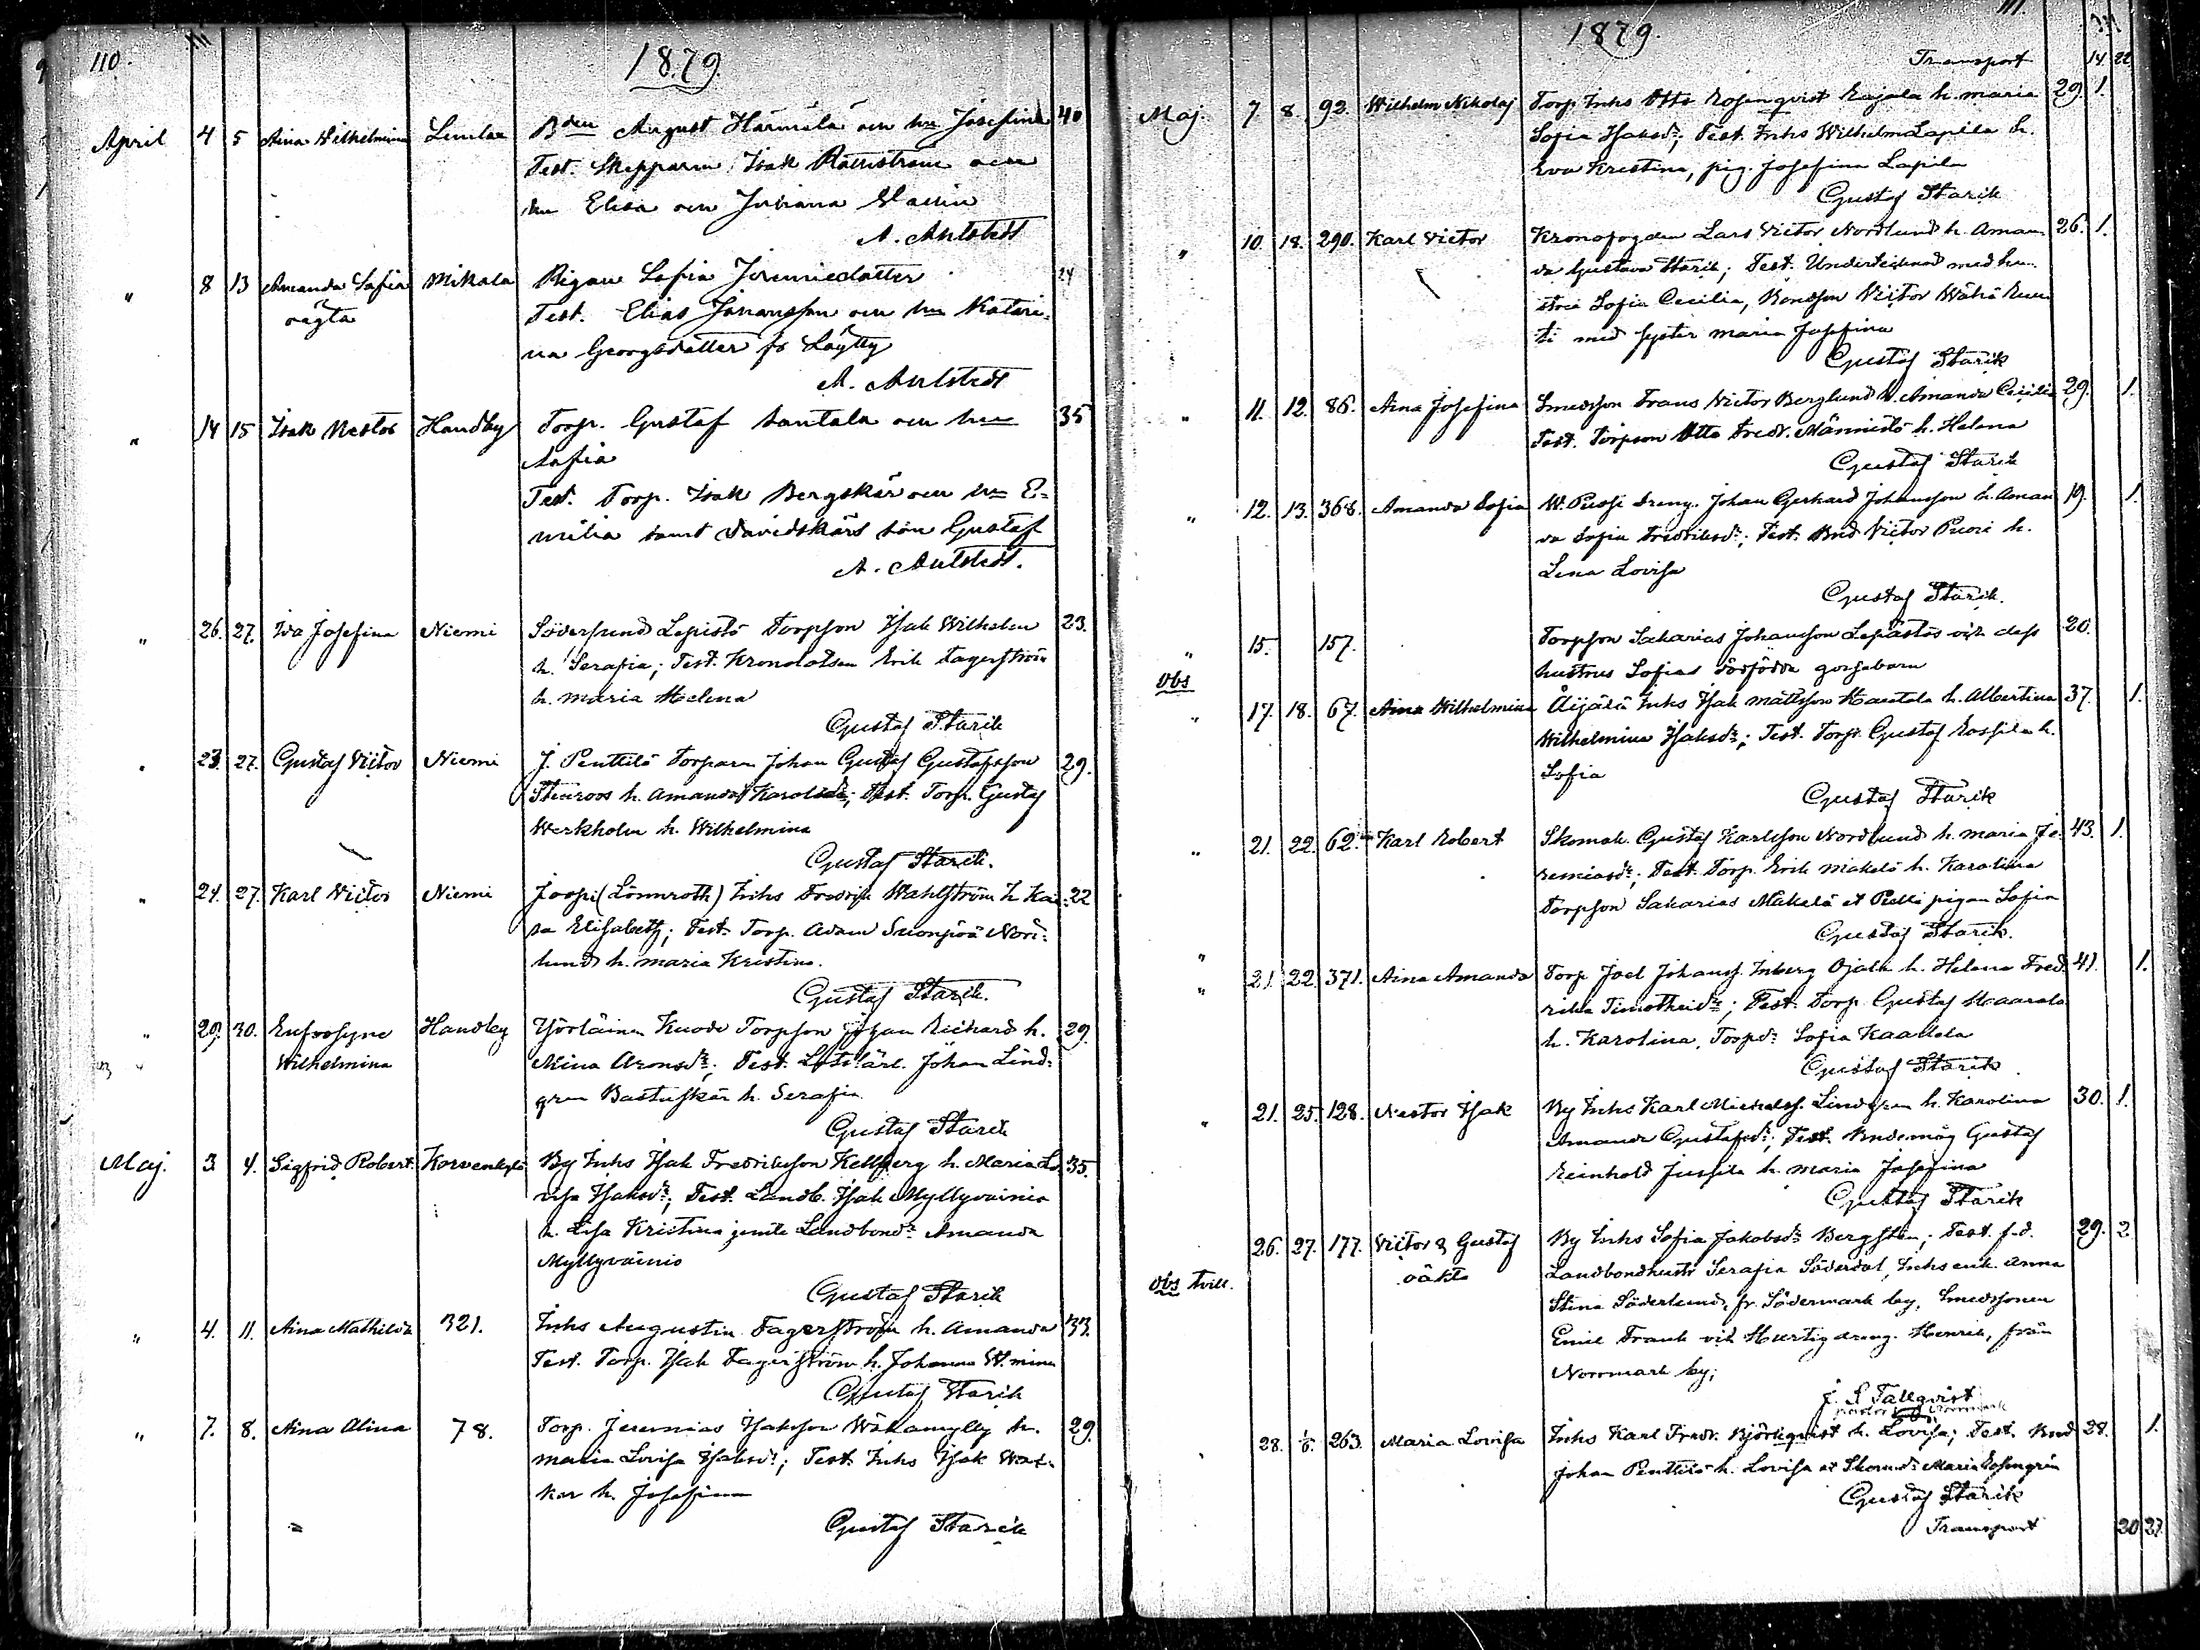 110.
1879.
April 4 5 Aina Wilhelmina Lemlax Bden August Härmälä och hu Josefina 40
Test. Skepparen Isak Rännström och
hu Elisa och Juliana
A. Ahlstedt
" 8 13 Amanda Sofia Mikola Pigan Sofia Jeremiedotter 24
oägta Test. Elias Johansson och hu Katari-
na Georgsdotter fr Löytty
A. Ahlstedt
" 14 15 Isak Nestor Handby Torp. Gustaf Santala och hu 35
Sofia
Test. Torp. Isak Bergskär och hu E-
milia samt Davidskärs son Gustaf
A. Ahlstedt.
" 26. 27. Ida Josefina Niemi Södersund Lepistö Torpson Isak Wilhelm 23.
h. Serafia; Test. Kronolotsen Erik Fagerström
h. Maria Helena
Gustaf Starik
" 23. 27. Gustaf Victor Niemi J. Penttilä Torparen Johan Gustaf Gustafsson 29.
Stenroos h. Amanda Karolsdr; Test. Torp. Gustaf
Werkholm h. Wilhelmina
Gustaf Starik.
" 24. 27. Karl Victor Niemi Jooyi (Lönnroth) Inhs Fredrik Wahlström h. Kai- 22
sa Elisabeth; Test. Torp. Adam Suonpää Nord-
lund h. Maria Kristina.
Gustaf Starik.
" 29. 30. Eufrosyne Handby Torpson Johan Richard h. 29.
Wilhelmina Mina Aronsdr; Test. Lotslärl. Johan Lind-
gren Bastuskär h. Serafia
Gustaf Starik
Maj. 3 4. Sigfrid Robert Korvenkylä By Inhs Isak Fredriksson Kellberg h. Maria Lo- 35.
visa Isaksdr; Test. Landb. Isak Myllyvainio
h. Lisa Kristina jemte Landbondr Amanda
Myllyvainio
Gustaf Starik
" 4. 11. Aina Mathilda 321. Inhs Augustin Fagerström h. Amanda 33.
Test. Torp. Isak Fagerström h. Johanna W.mina
Gustaf Starik
" 7. 8. Aina Alina 78. Torp. Jeremias Isaksson Wähämylly h. 29.
Maria Lovisa Isaksdr; Test. Inhs Isak
h. Josefina
Gustaf Starik
111.
1879.
Transport 14 22
Maj. 7 8. 92. Wilhelm Nikolaj Torp. Inhs Otto Rosenqvist Rajala h. Maria 29. 1.
Sofia Isaksdr; Test. Inhs Wilhelm Lapila h.
Eva Kristina, pig. Josefina Lapila
Gustaf Starik
" 10. 18. 290. Karl Victor Kronofogden Lars Victor Nordlund h. Aman- 26. 1.
da Gustava Starik; Test. Undertecknad med hu-
stru Sofia Cecilia, Bondson Victor Wähä
med syster Maria Josefina
Gustaf Starik
" 11. 12. 86. Aina Josefina Smedsson Frans Victor Berglund h. Amanda Cecilia 29. 1.
Test. Torpson Otto Fredr. Männistö h. Helena
Gustaf Starik
" 12. 13. 368. Amanda Sofia W. Puosi dreng. Johan Gerhard Johansson h. Aman- 19. 1.
da Sofia Fredriksdr; Test. Bnd Victor Puosi h.
Lena Lovisa
Gustaf Starik.
" 15. 157. Torpson Sakarias Johansson Lepistös och dess 20.
obs hustrus Sofias dödfödda gossebarn
" 17. 18. 67. Aina Wilhelmina Äijälä Inhs Isak Mattsson Haavtala h. Albertina 37. 1.
Wilhelmina Isaksdr; Test. Torpr. Gustaf h.
Sofia
Gustaf Starik
" 21. 22. 62. Karl Robert Skomak. Gustaf Karlsson Nordlund h. Maria Je- 43. 1.
remiasdr; Test. Torp. Erik Mäkelä h. Karolina
Torpson Sakarias Mäkelä et pigan Sofia
Gustaf Starik.
" 21. 22. 371. Aina Amanda Torp. Joel Johanss. Inberg Ojala h. Helena Fred- 41. 1.
rika Timotheidr; Test. Torp. Gustaf
h. Karolina, Torpdr Sofia
Gustaf Starik
" 21. 25. 128. Nestor Isak By Inhs Karl Michelss. Lindgren h. Karolina 30. 1.
Amanda Gustafsdr; Test. Bndemåg Gustaf
Reinhold Jussila h. Maria Josefina
Gustaf Starik
26. 27. 177. Victor & Gustaf By Inhs Sofia Jakobsdr Bergsten; Test. f.d. 29. 2
obs tvill. oäkta Landbondhustr Serafia Söderdal, Inhs enk. Anna
Stina Söderlund, fr. Södermark by, Smedssonen
Emil Frank och Hurtig dreng. Henrik, från
Norrmark by;
J. S Tallqvist
pastor i Norrmark
28. 1/6. 263. Maria Lovisa Inhs Karl Fredr. Björkqvist h. Lovisa; Test. Bnd 28. 1.
Johan Penttilä h. Lovisa et Skomdr Maria Rosengrén
Gustaf Starik
Transport 20 27.